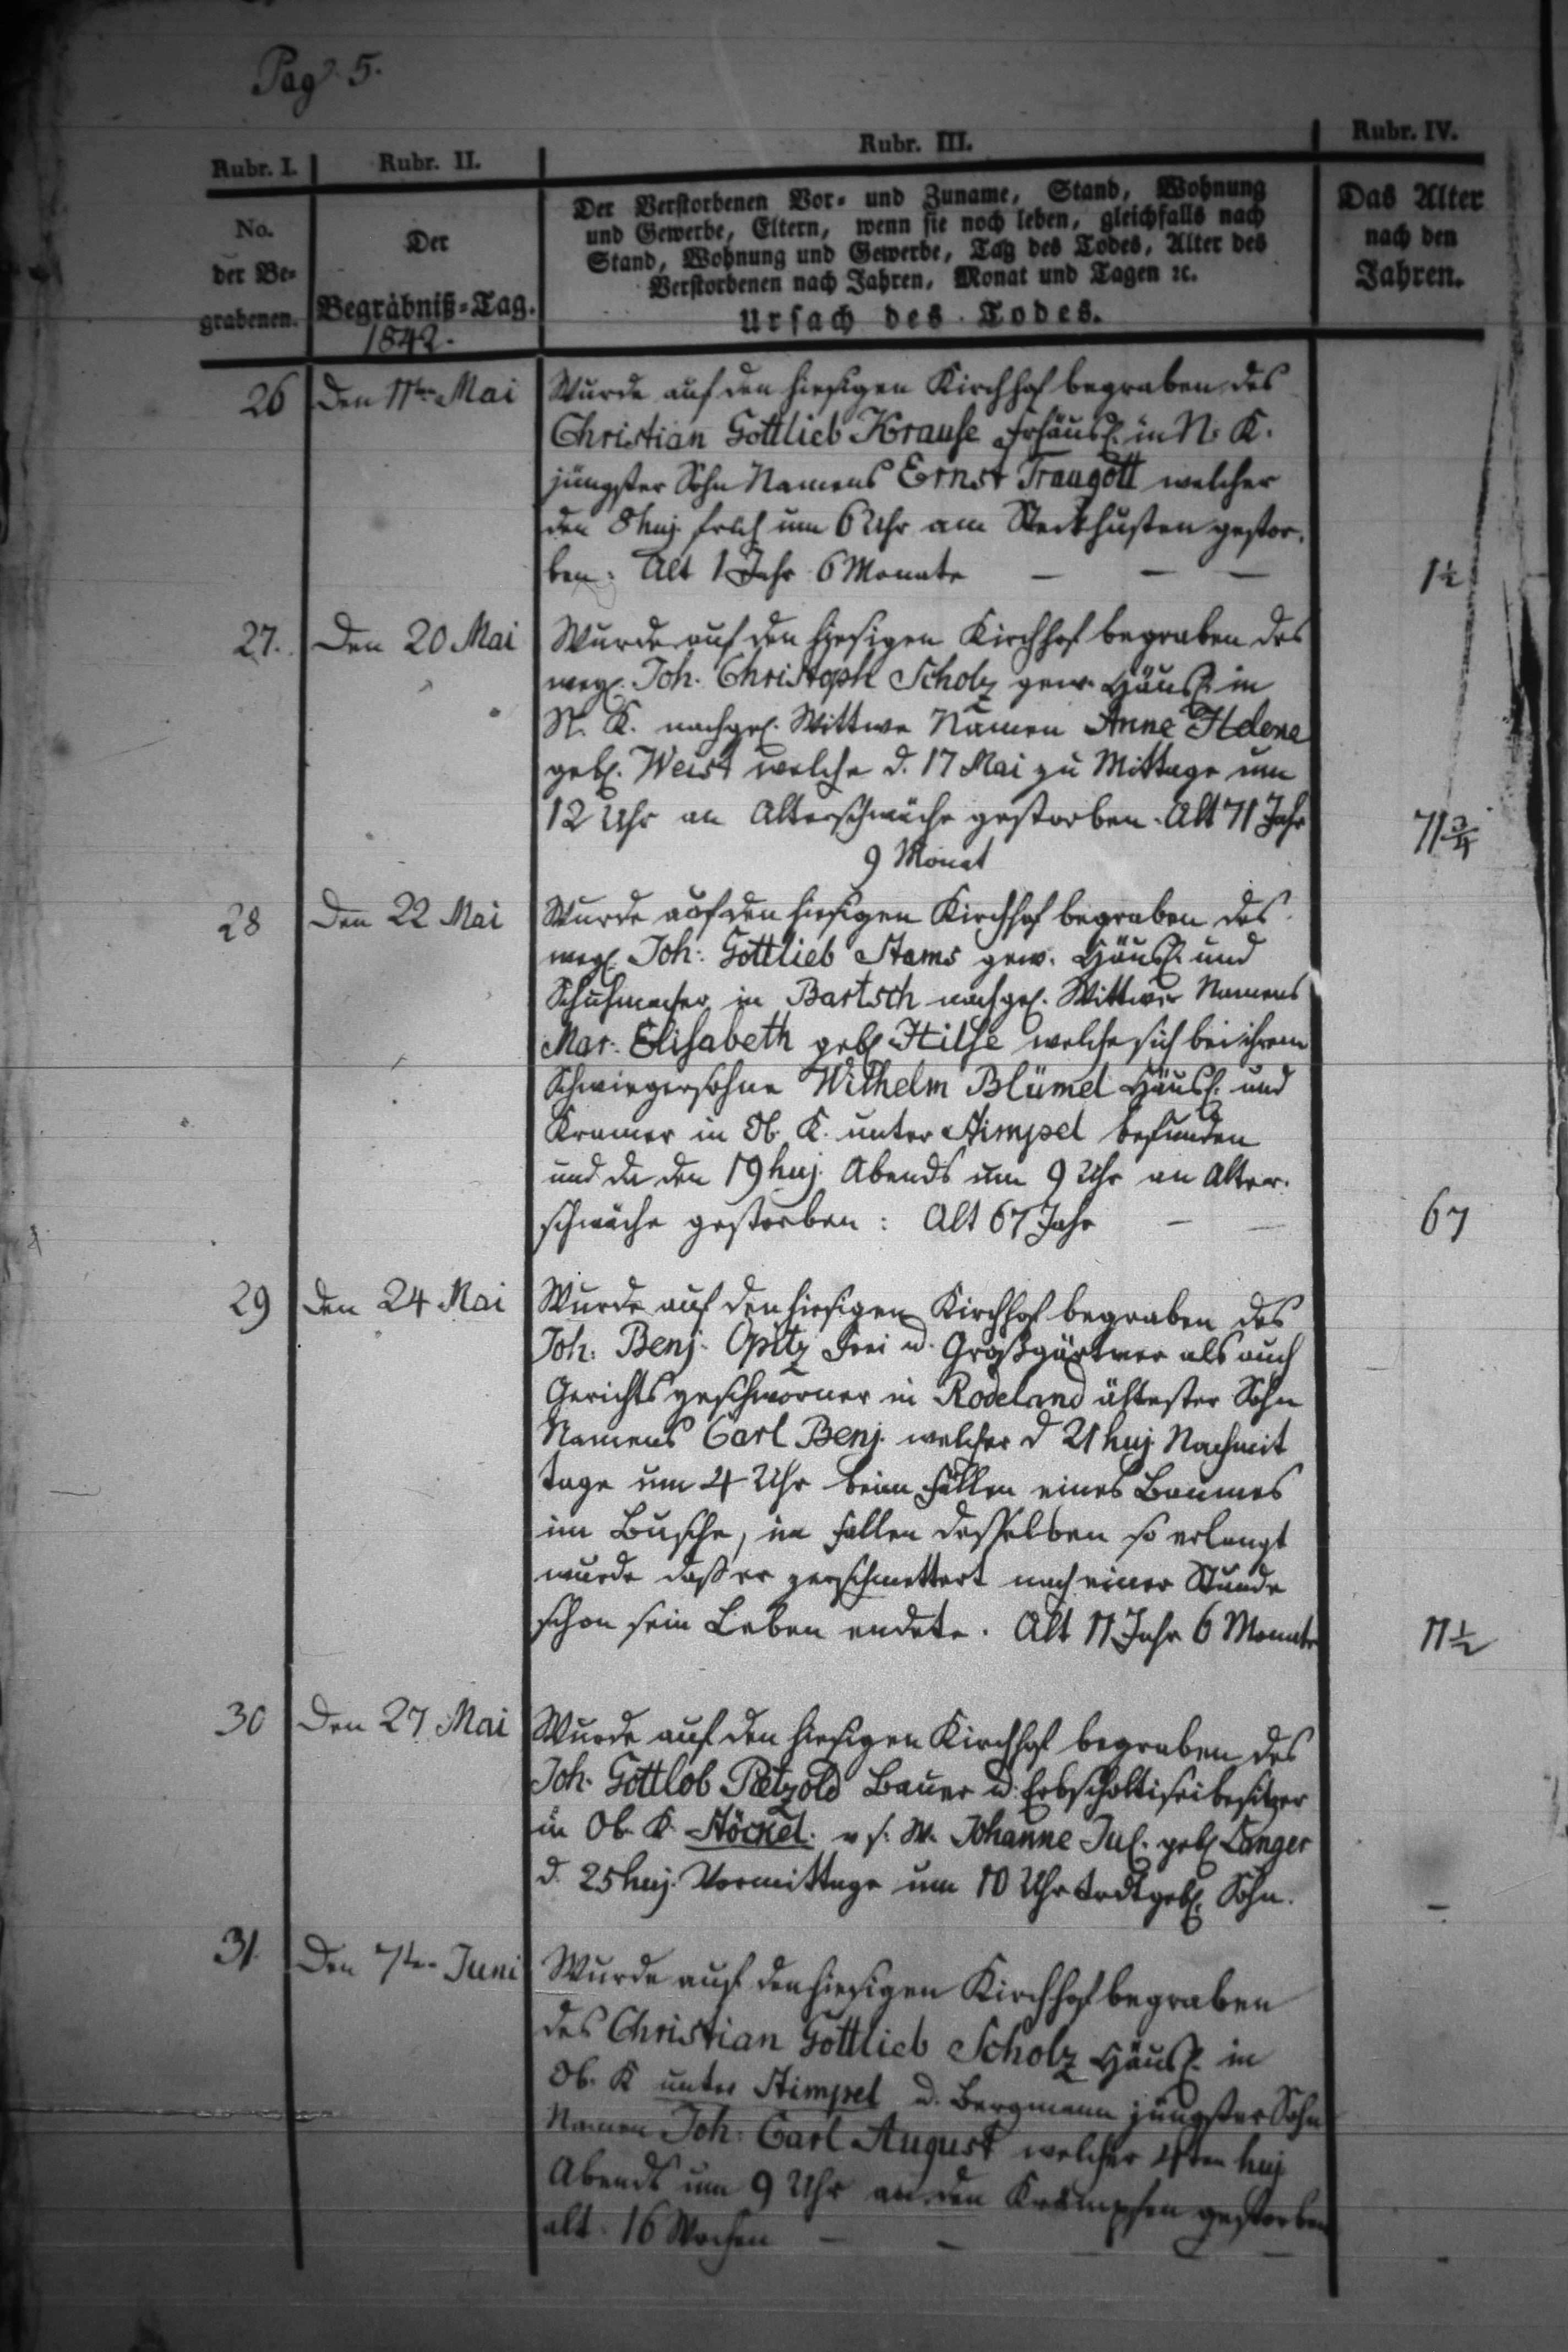 Pag. 5.
Rubr. I. Rubr. II. Rubr. III. Rubr. IV.
No.
der Be-
grabenen.
Der
Begräbniß-Tag.
1842.
Der Verstorbenen Vor- und Zuname, Stand, Wohnung
und Gewerbe, Eltern, wenn sie noch leben, gleichfalls nach
Stand, Wohnung und Gewerbe, Tag des Todes, Alter des
Verstorbenen nach Jahren, Monat und Tagen ꝛc.
Ursach des Todes.
Das Alter
nach den
Jahren.
26 Den 11ten Mai Wurde auf den hiesigen Kirchhof begraben des
Christian Gottlieb Krause Frhäusl. in N. K.
jüngster Sohn Namens Ernst Traugott welcher
den 8 huj. früh um 6 Uhr am Steckhusten gestor-
ben: Alt 1 Jahr 6 Monate — — — 1½
27. Den 20 Mai Wurde auf den hiesigen Kirchhof begraben des
weyl. Joh. Christoph Scholz gew. Häusl. in
N. K. nachgel. Wittwe Namen Anne Helene
geb. Weist welche d. 17 Mai zu Mittage um
12 Uhr an Alterschwäche gestorben. Alt 71 Jahr 71¾
9 Monat
28 Den 22 Mai Wurde auf den hiesigen Kirchhof begraben des
weyl. Joh: Gottlieb Stams gew. Häusl. und
Schuhmacher in Bartsch nachgel. Wittwe Namens
Mar. Elisabeth geb. Hilse welche sich bei ihrem
Schwiegersohne Wilhelm Blümel Häusl. und
Kramer in Ob. K. unter Stimpel befunden
und da den 19 huj. Abends um 9 Uhr an Alter-
schwäche gestorben: Alt 67 Jahr — — 67
29 Den 24 Mai Wurde auf den hiesigen Kirchhof begraben des
Joh: Benj. Opitz Frei u. Großgärtner als auch
Gerichtsgeschworner in Rodeland ältester Sohn
Namens Carl Benj. welcher d 21 huj Nachmit
tage um 4 Uhr beim Fällen eines Baumes
im Busche, im Fallen desselben so erlangt
wurde daß er zerschmettert nach einer Stunde
schon sein Leben endete. Alt 11 Jahr 6 Monate 11½
30 Den 27 Mai Wurde auf den hiesigen Kirchhof begraben des
Joh. Gottlob Pätzold Bauer u. Erbscholtiseibesitzer
in Ob. K. Stöckel. v s. W. Johanne Jul. geb. Langer
d. 25 huj. Vormittage um 10 Uhr todtgeb. Sohn. —
31. Den 7ten Juni Wurde auf den hiesigen Kirchhof begraben
des Christian Gottlieb Scholz Häusl. in
Ob. K unter Stimpel u. Bergmann jüngster Sohn
Namen Joh: Carl August welcher 4ten huj
Abends um 9 Uhr an den Krämpfen gestorben
alt. 16 Wochen — — — —